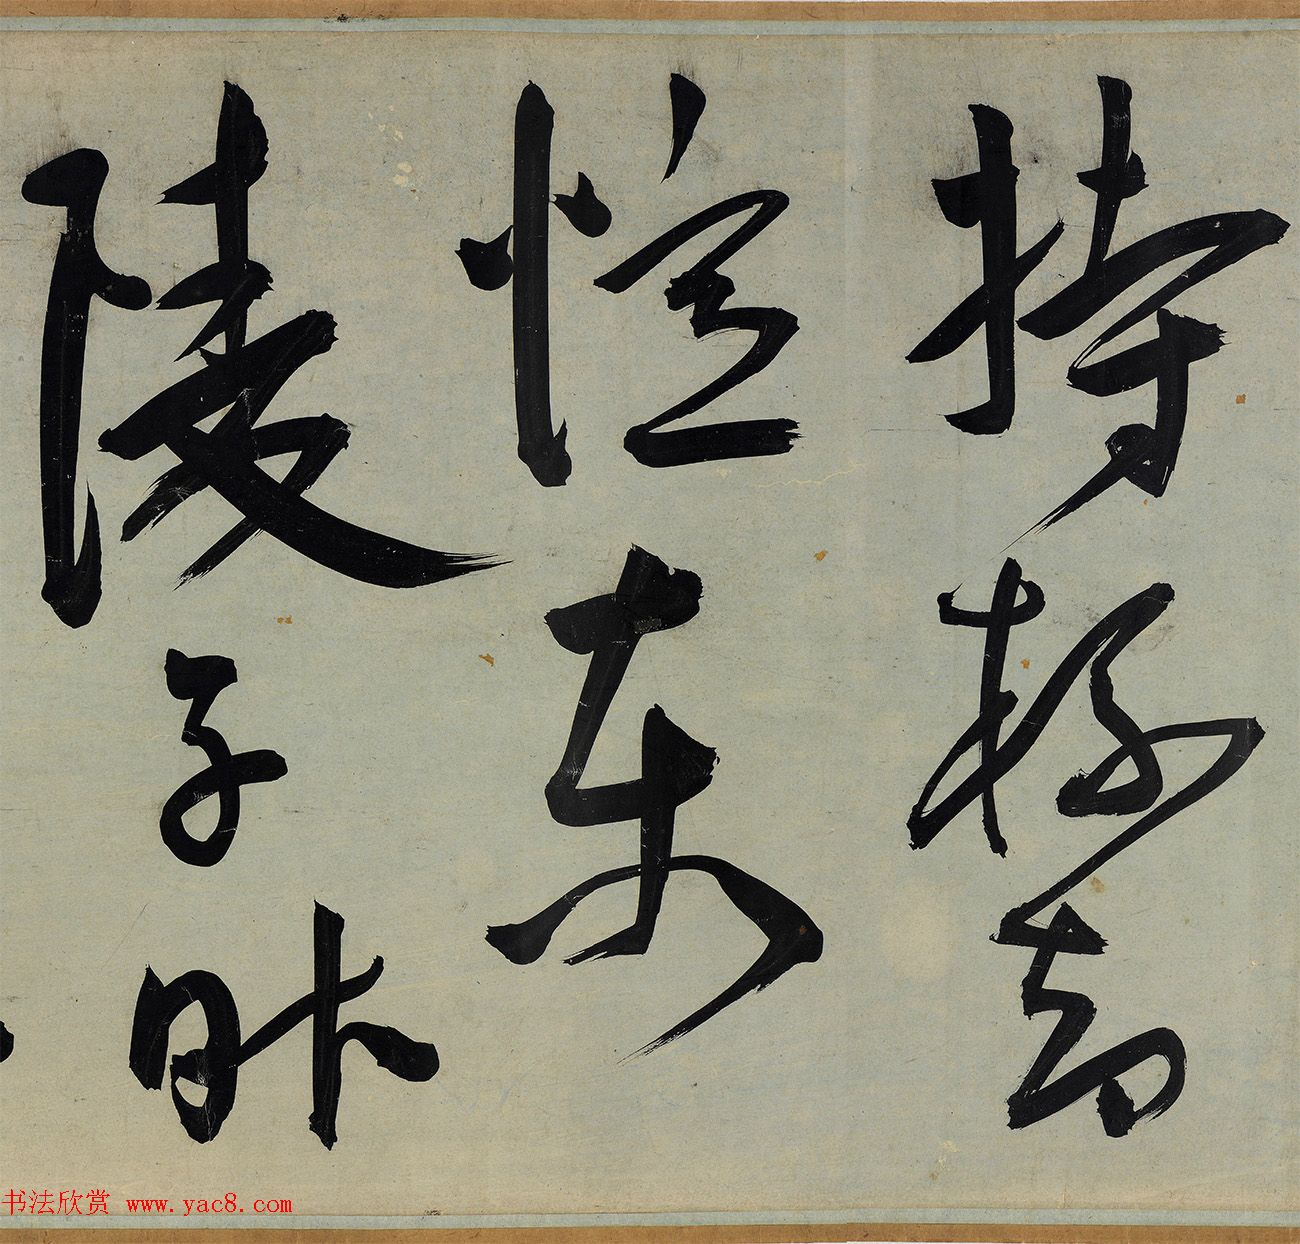 持杯却
憶東
陵子
书法欣赏 www.yac8.com